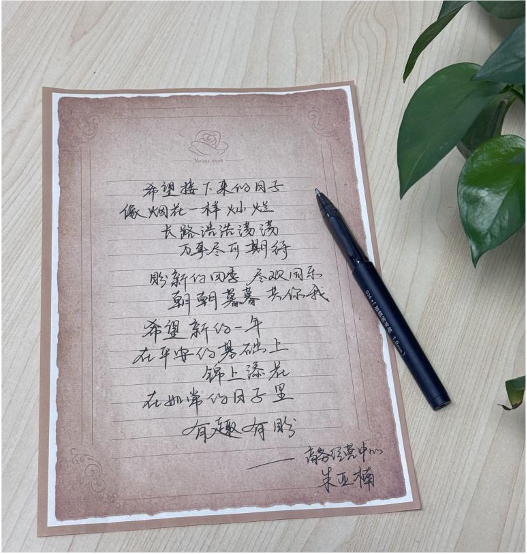 希望接下来的日子
像烟花一样灿烂
长路浩浩荡荡
万事尽可期待
盼新的四季 尽欢同乐
朝朝暮暮 共你我
希望新的一年
在平安的基础上
锦上添花
在如常的日子里
有趣有盼
—— 商务经营中心
朱亚楠